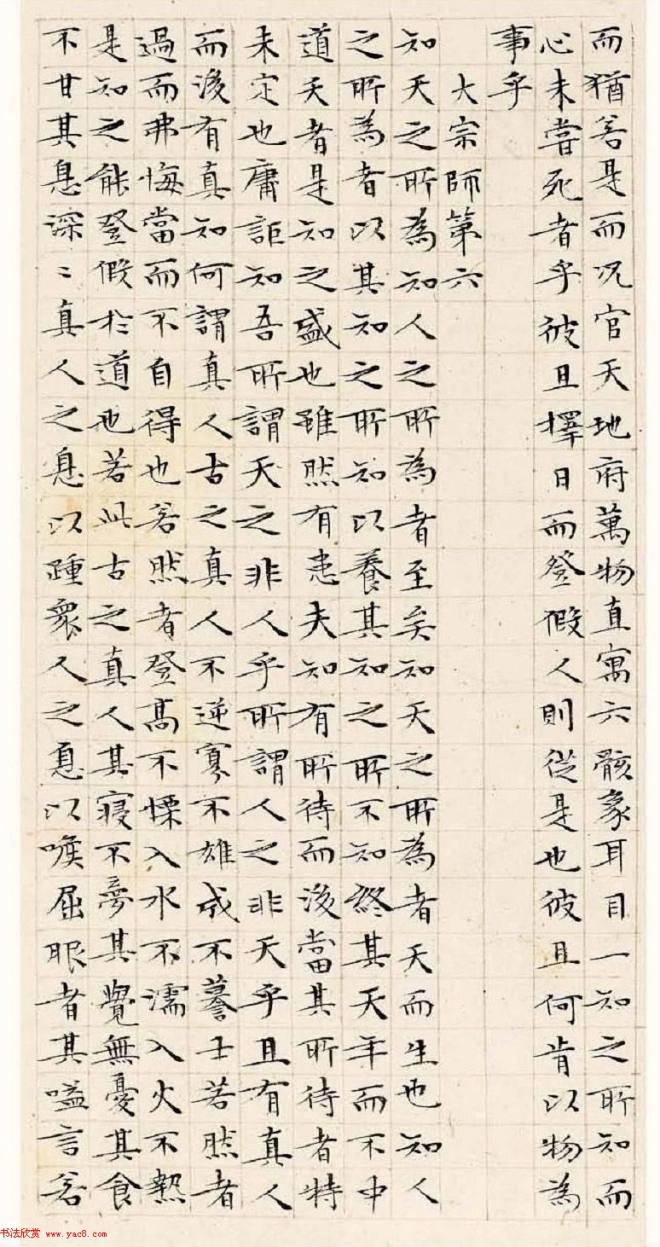 而猶若是而况官天地府萬物直寓六骸象耳目一知之所知而
心未嘗死者乎彼且擇日而登假人則從是也彼且何肯以物為
事乎
大宗師第六
知天之所為知人之所為者至矣知天之所為者天而生也知人
之所為者以其知之所知以養其知之所不知終其天年而不中
道夭者是知之盛也雖然有患夫知有所待而後當其所待者特
未定也庸詎知吾所謂天之非人乎所謂人之非天乎且有真人
而後有真知何謂真人古之真人不逆寡不雄成不謩士若然者
過而弗悔當而不自得也若然者登高不慄入水不濡入火不熱
是知之能登假於道也若此古之真人其寢不夢其覺無憂其食
不甘其息深〻真人之息以踵衆人之息以喉屈服者其嗌言若
书法欣赏 www.yac8.com